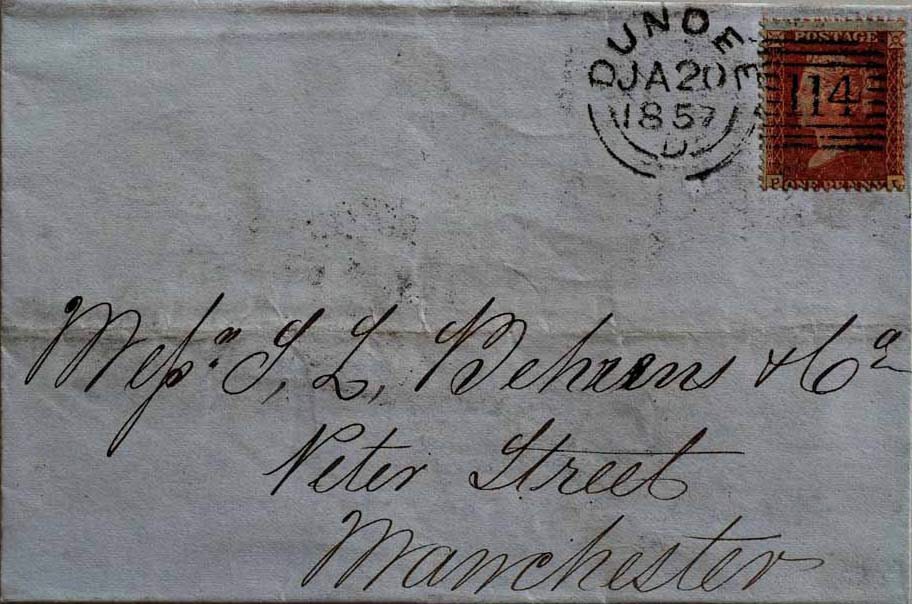 DUNDEE
JA 20
1857
D
POSTAGE
114
P ONE PENNY L
Messrs. S, L, Behrens & Co
Peter Street
Manchester